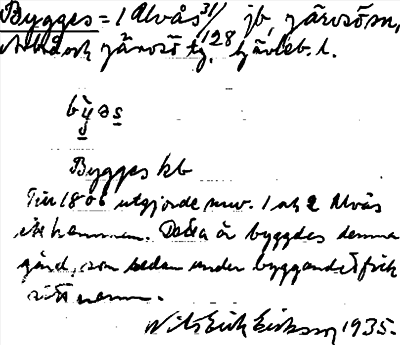 Bygges = 1 Alvås 31/ jb, Järvsö sn,
Arbrå och Järvsö tg. 128 Gävleb. l.
bỳgəs
Bygges kb
Till 1806 utgjorde nuv. 1 och 2 Alvås
ett hemman. Detta år byggdes denna
gård, som sedan under byggandet fick
sitt namn.
Nils Erik Eriksson 1935.